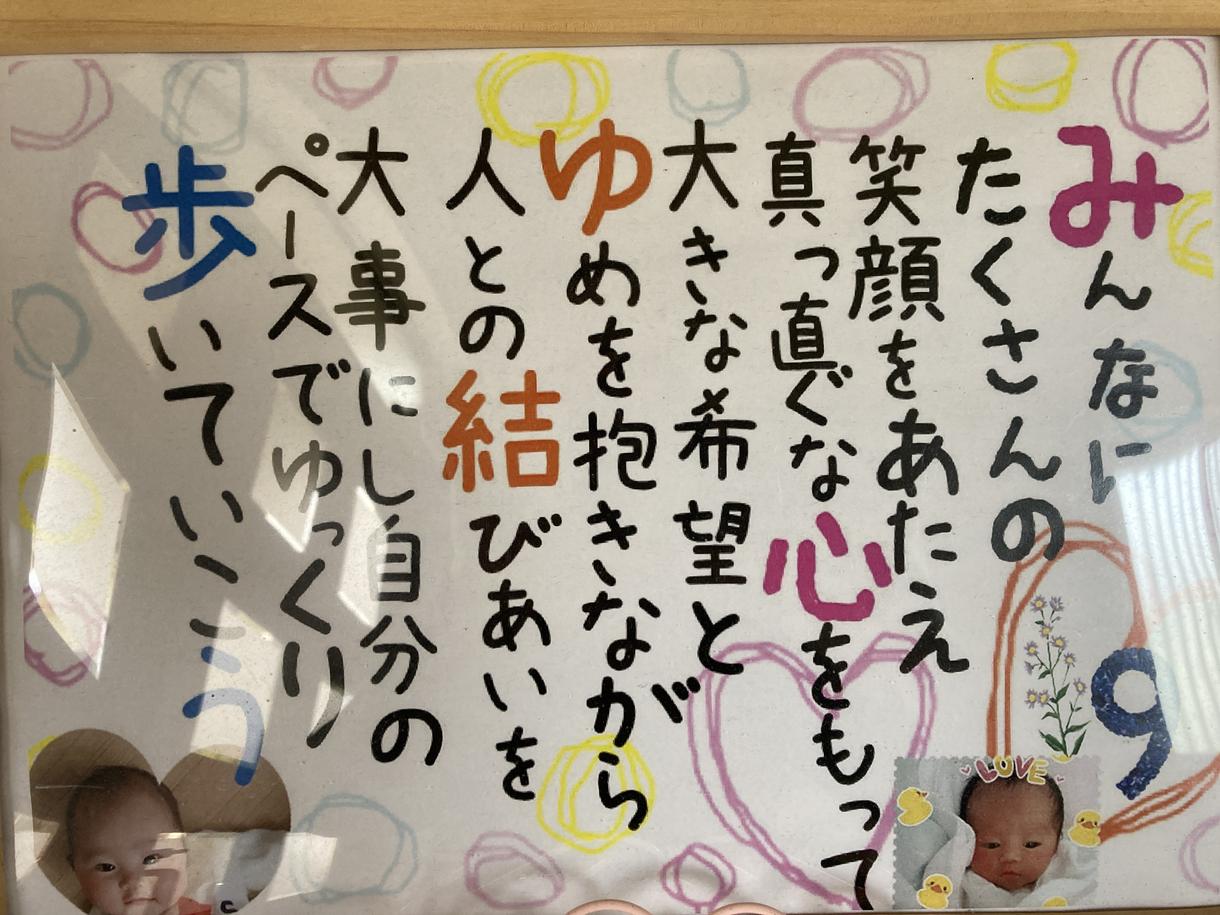 みんなに
たくさんの
笑顔をあたえ
真っ直ぐな心をもって
大きな希望と
ゆめを抱きながら
人との結びあいを
大事にし自分の
ペースでゆっくり
歩いていこう
9
LOVE